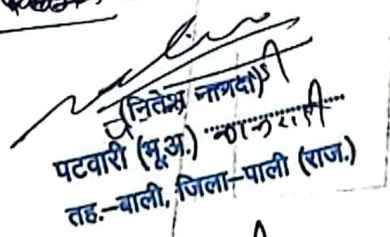 (नितेश नागदा)
पटवारी (भू.अ.)
तह.-बाली, जिला-पाली (राज.)